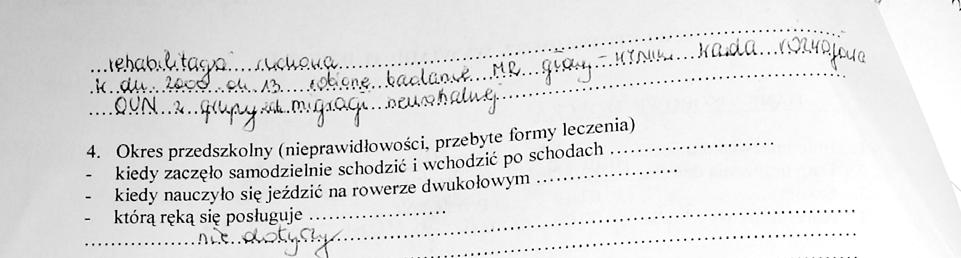 ...rehabilitacja ruchowa...
w dn. 2000 ... 13 robione badanie MR głowy - wynik wada rozwojowa
... OUN z grupy ... migracji neuronalnej
4. Okres przedszkolny (nieprawidłowości, przebyte formy leczenia)
- kiedy zaczęło samodzielnie schodzić i wchodzić po schodach ..........................
- kiedy nauczyło się jeździć na rowerze dwukołowym ......................
- którą ręką się posługuje ......................
......................nie dotyczy......................